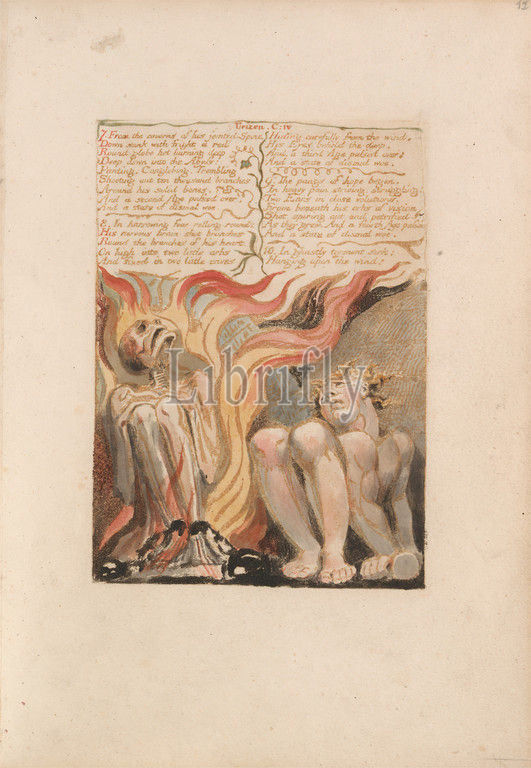 12
Urizen. C: IV
7. From the caverns of his jointed Spine,
Down sunk with fright a red
Round globe hot burning deep
Deep down into the Abyss:
Panting: Conglobing, Trembling
Shooting out ten thousand branches
Around his solid bones.
And a second Age passed over,
And a state of dismal woe.
8. In harrowing fear rolling round;
His nervous brain shot branches
Round the branches of his heart.
On high into two little orbs
And fixed in two little caves
Hiding carefully from the wind,
His Eyes beheld the deep,
And a third Age passed over:
And a state of dismal woe.
9. The pangs of hope began,
In heavy pain striving, struggling.
Two Ears in close volutions.
From beneath his orbs of vision
Shot spiring out and petrified
As they grew. And a fourth Age passed
And a state of dismal woe.
10. In ghastly torment sick;
Hanging upon the wind;
Librifly